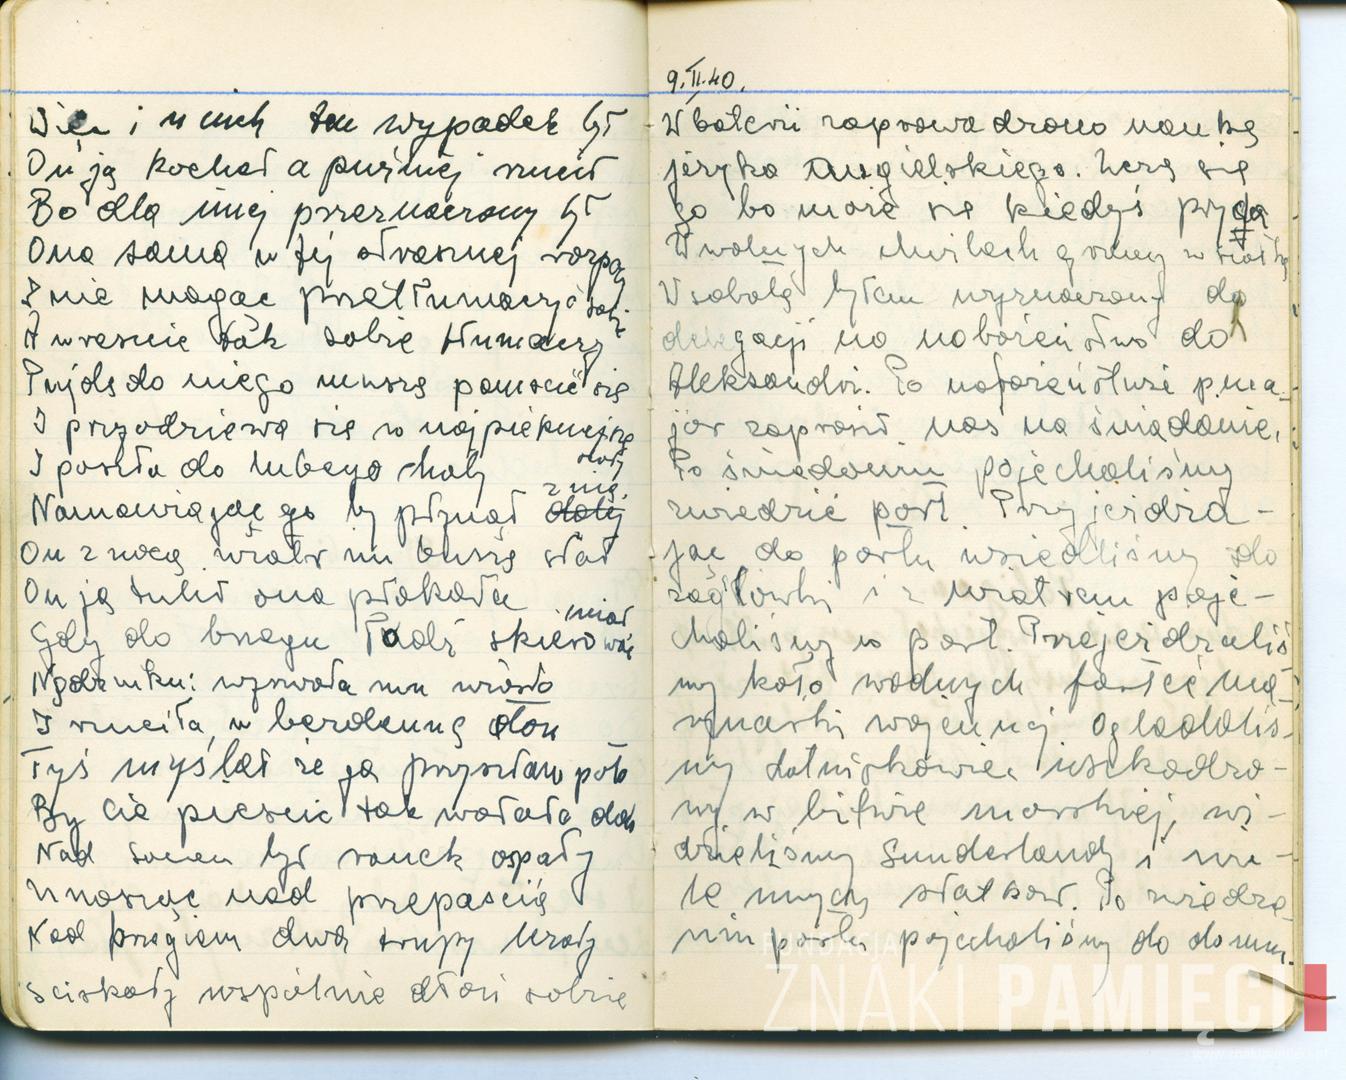 Więc i u nich ten wypadek był
On ją kochał a puźniej rzucił
Bo dla innej przeznaczony był
Ona sama w tej strasznej rozpaczy
I nie mogąc przetłumaczyć sobie
A wreszcie tak sobie tłumaczy
Pujdę do niego muszę pomścić się
I przyodziewa się w najpiękniejszą
I poszła do lubego chaty
z nią
Namawiając go by płynął dalej
On z nocą wiatr mu burzą stał
On ją tulił ona płakała
miał
Gdy do brzegu łodź skierować
wyrwała mu wiosło
I rzuciła w bezdenną toń
Tyś myślał że ja przyszłam poto
By cię pieścić tak wołała doń
Nad ranem był ospały
Unosząc nad przepaścią
Nad brzegiem dwa trupy leżały
Ściskały wspólnie dłoń sobie
9.II.40.
W baterii zaprowadzono naukę
języka angielskiego. Uczę się
go bo może się kiedyś przyda
W wolnych chwilach gramy w siatkę
W sobotę byłem wyznaczony do
delegacji na nabożeństwo do
Aleksandri. Po nabożeństwie p. ma-
jor zaprosił nas na śniadanie.
Po śniadaniu pojechaliśmy
zwiedzić port. Przyjeżdża-
jąc do portu wsiedliśmy do
żaglówki i z wiatrem poje-
chaliśmy w port. Przejeżdzaliś
my koło wodnych fortec ma-
rynarki wojennej Oglądaliś-
my lotniskowiec uszkodzo-
ny w bitwie morskiej, wi-
dzieliśmy Sunderlandy i wie-
le innych statków. Po zwiedze-
niu portu pojechaliśmy do domu.
FUNDACJA
ZNAKI PAMIĘCI